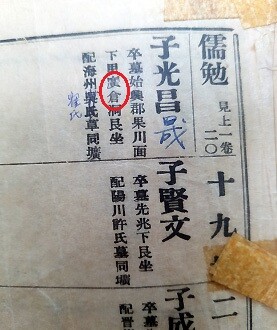 儒勉 見上一卷 二〇
子光昌 晟
卒墓始興郡果川面
下里廣倉洞艮坐
配海州氏草同壙
氏
十九
子賢文
卒墓先兆下艮坐
配陽川許氏墓同壙
二
子成
卒墓
配晋